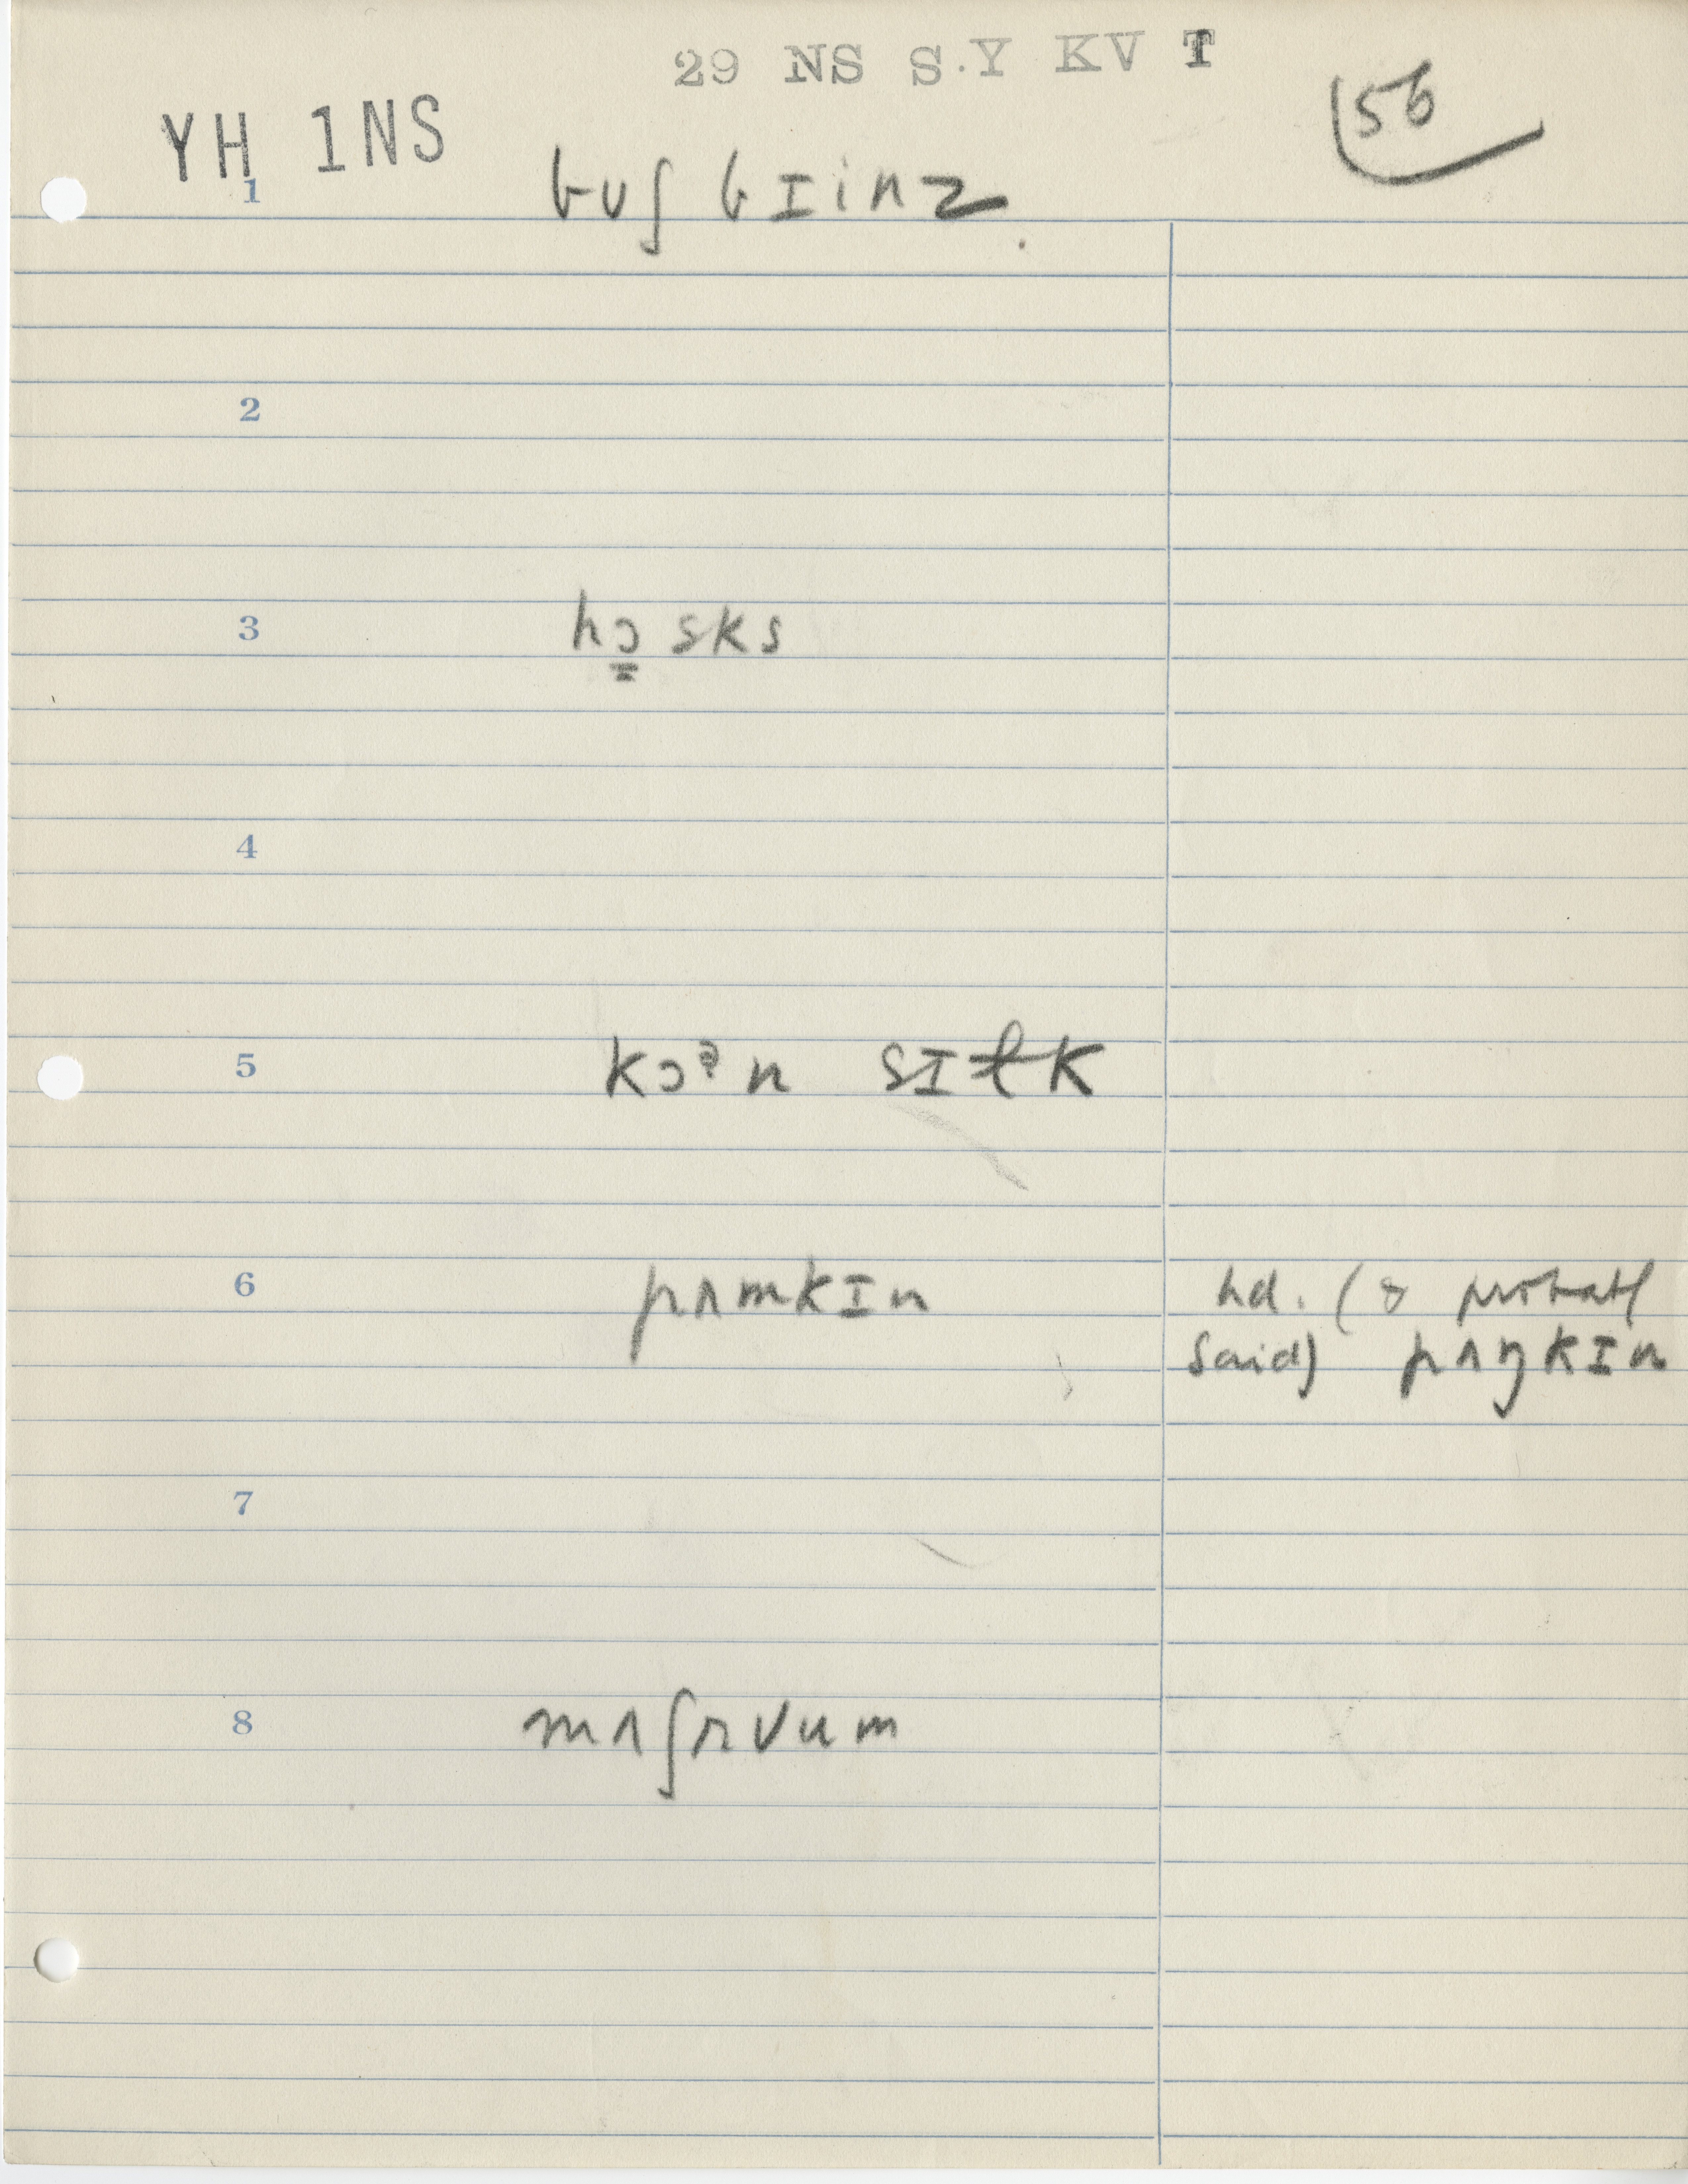 29 NS S.Y KV T
YH 1NS
56
1 bʊʃ bɪinz
2
3 hɔ̳ sks
4
5 kɔᵊn sɪɫk
6 pʌmkɪn hd. (&
said) pʌŋkɪn
7
8 mʌʃrʊum